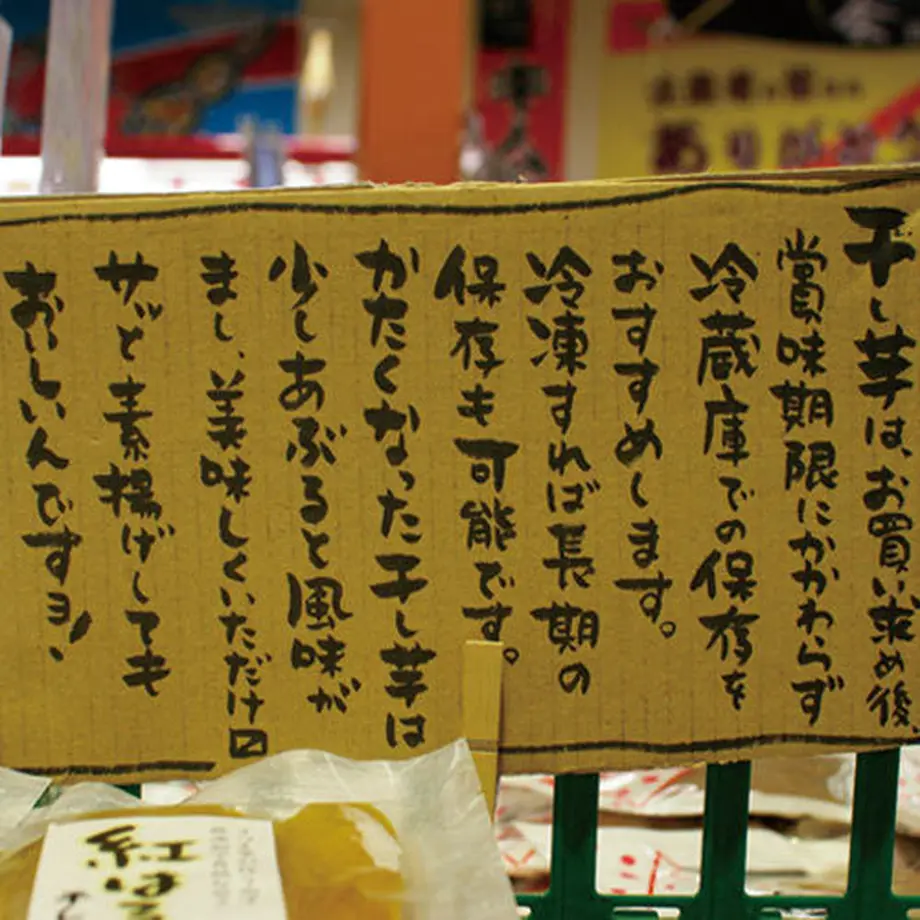 干し芋は、お買い求め後、
賞味期限にかかわらず
冷蔵庫での保存を
おすすめします。
冷凍すれば長期の
保存も可能です。
かたくなった干し芋は
少しあぶると風味が
まし、美味しくいただけ〼
サッと素揚げしても
おいしいんですヨ！
ありがとう
紅はる